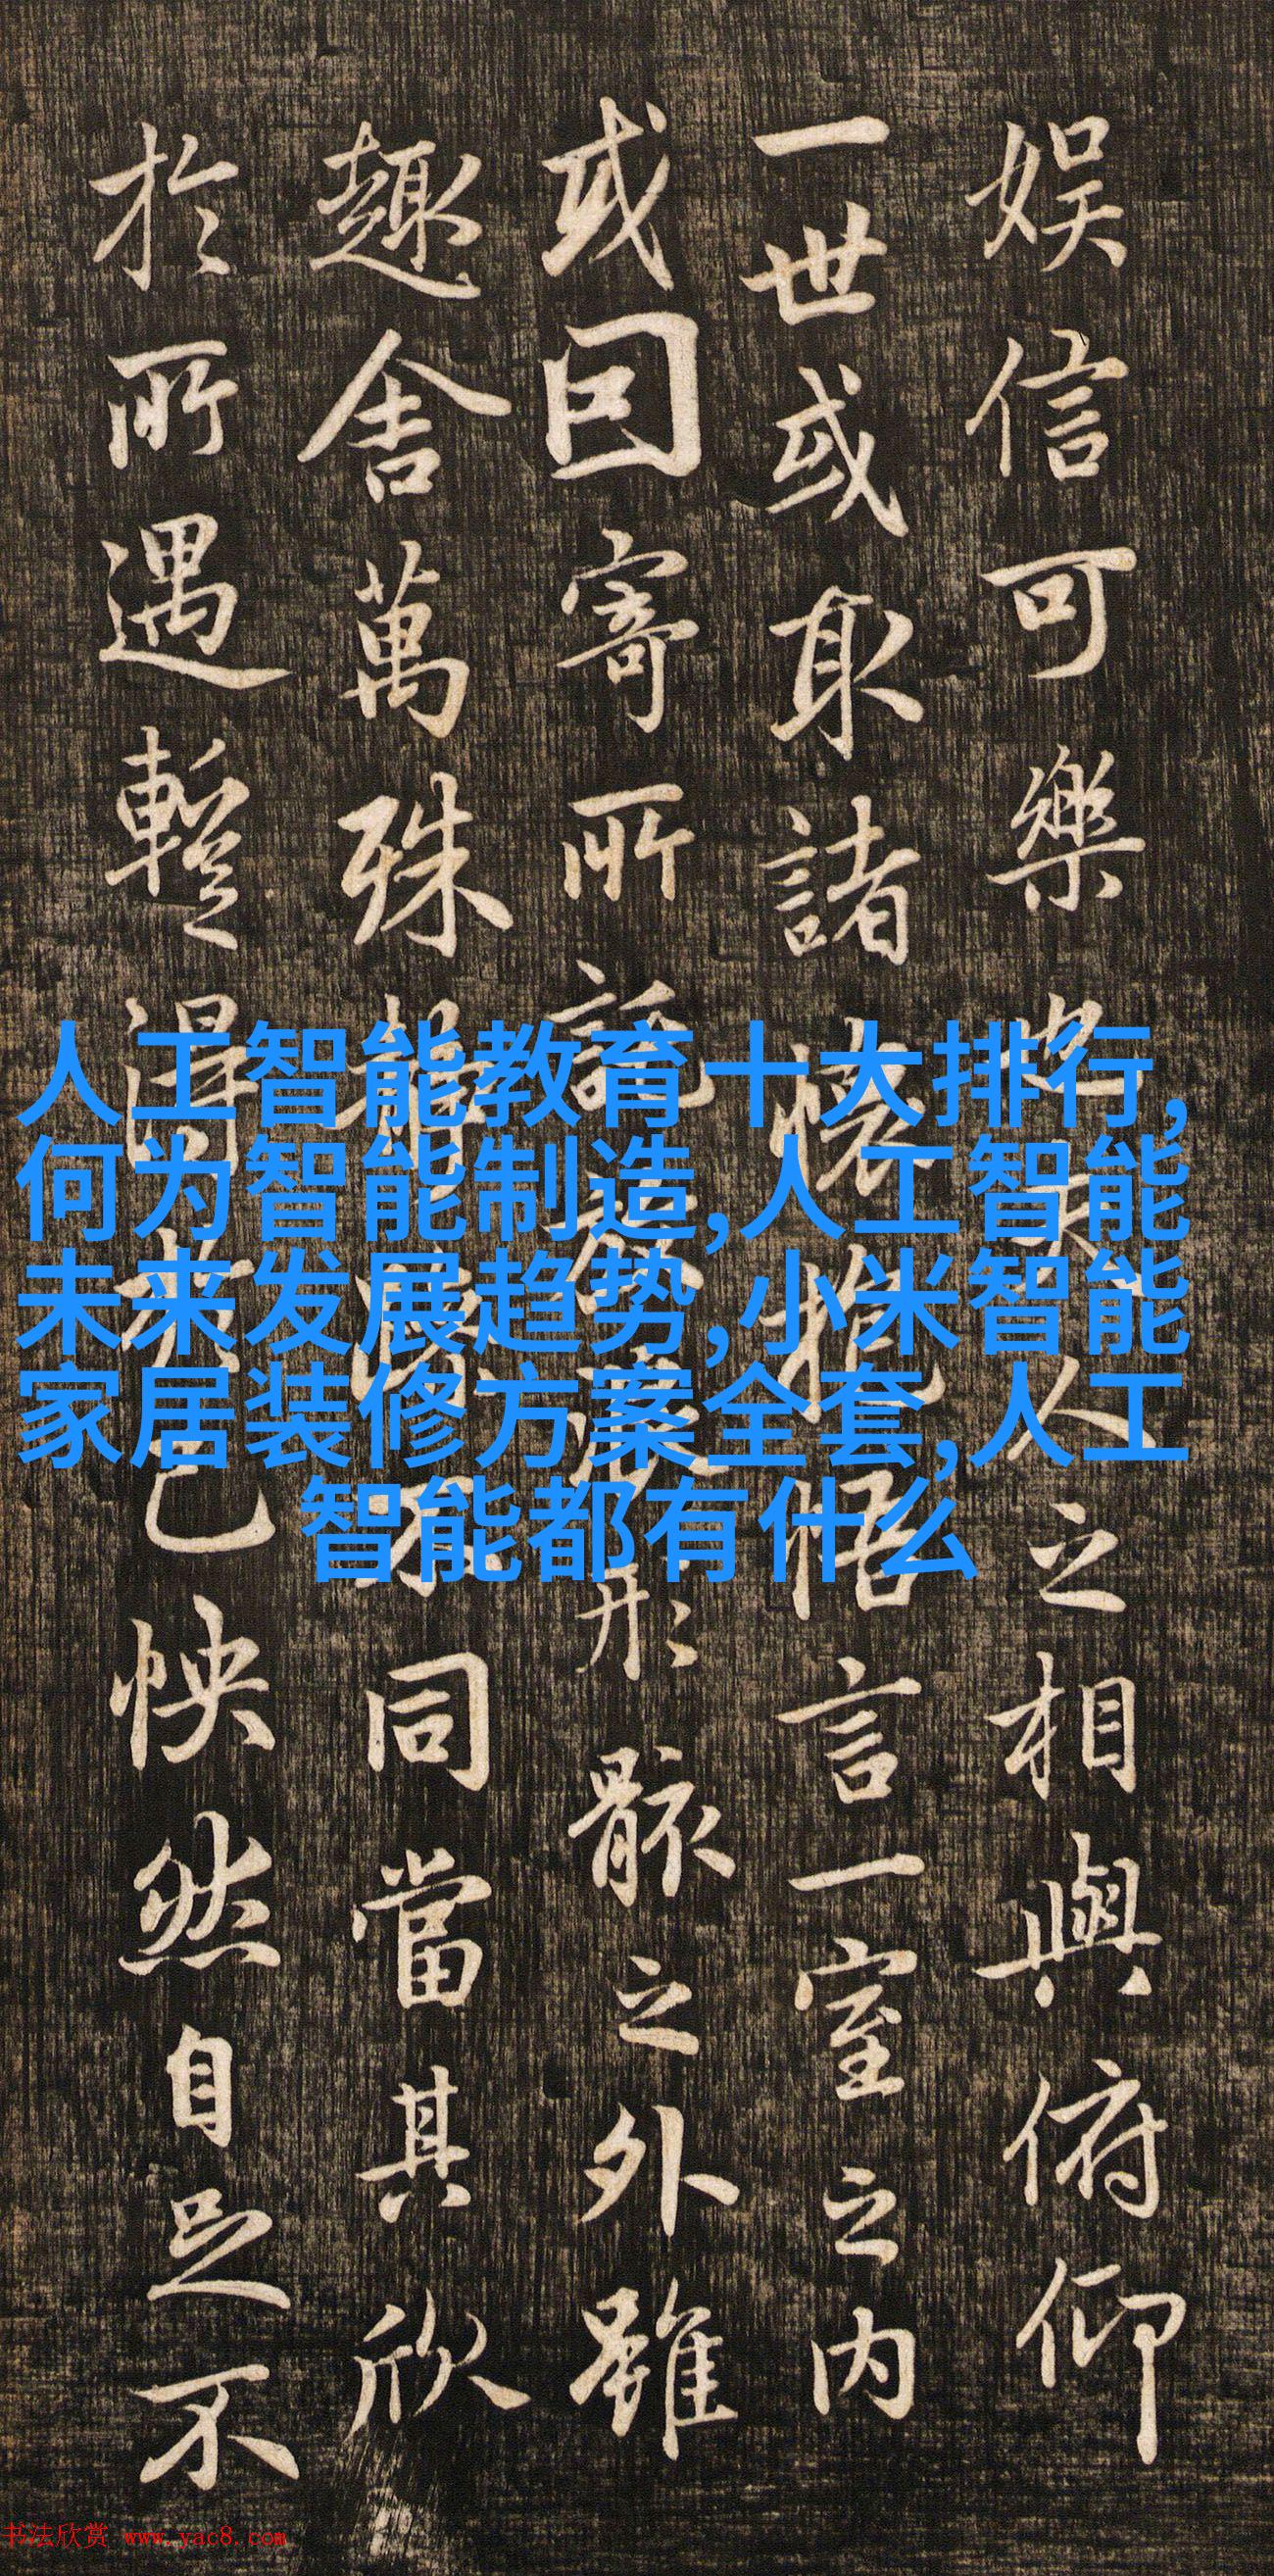 娱信可樂也夫人之相與俯仰
一世或取諸懷抱悟言一室之内
或因寄所託放浪形骸之外雖
趣舍萬殊静躁不同當其欣
於所遇暫得於己怏然自足不
人工智能教育十大排行,
何为智能制造,人工智能
未来发展趋势,小米智能
家居装修方案全套,人工
智能都有什么
书法欣赏 www.yac8.com